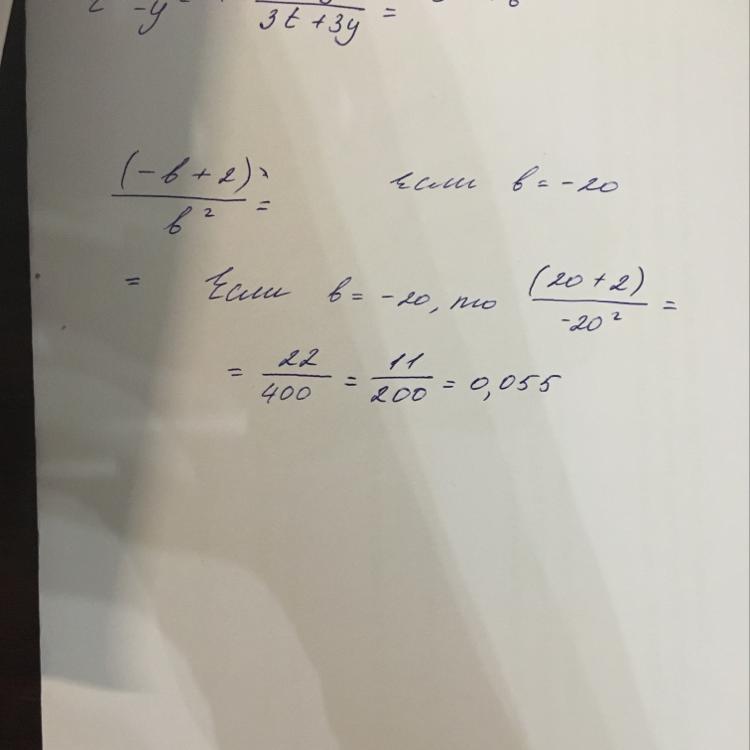 -y 3t + 3y =
(-b + 2) / b² = Если b = -20
= Если b = -20, то (20 + 2) / -20² =
= 22/400 = 11/200 = 0,055